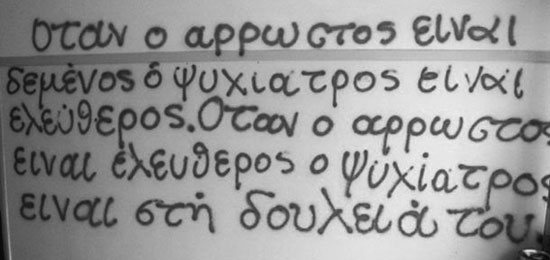 οταν ο αρρωστος ειναι
δεμένος ὁ ψυχιατρος ειναι
ελεύθερος. Οταν ο αρρωστος
ειναι έλευθερος ο ψυχίατρος
ειναι στή δουλειά του.